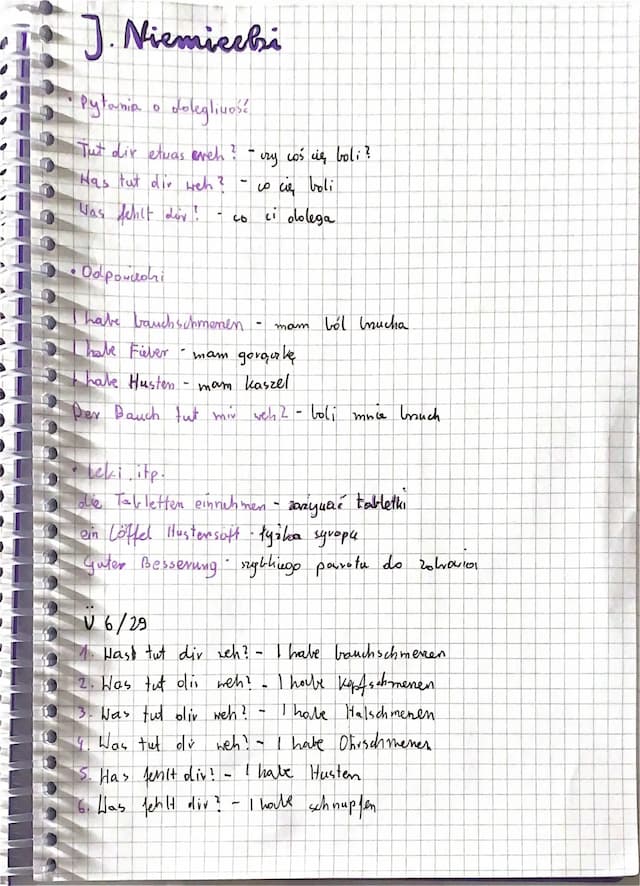 J. Niemiecki
• Pytania o dolegliwość
Tut dir etwas weh? - czy coś cię boli?
Was tut dir weh? - co cię boli
Was fehlt dir! - co ci dolega
• Odpowiedzi
I habe bauchschmerzen - mam ból brzucha
I habe Fieber - mam gorączkę
I habe Husten - mam kaszel
Der Bauch tut mir weh? - boli mnie brzuch
• Leki, itp.
die Tabletten einnehmen - zażywać tabletki
ein Löffel Hustensaft - łyżka syropu
Guter Besserung - szybkiego powrotu do zdrowia
Ü 6/29
1. Wast tut dir weh? - I habe bauchschmerzen
2. Was tut dir weh? - I habe Kopfschmerzen
3. Was tut dir weh? - I habe Halschmerzen
4. Was tut dir weh? - I habe Ohrschmerzen
5. Was fehlt dir! - I habe Husten
6. Was fehlt dir? - I habe schnupfen